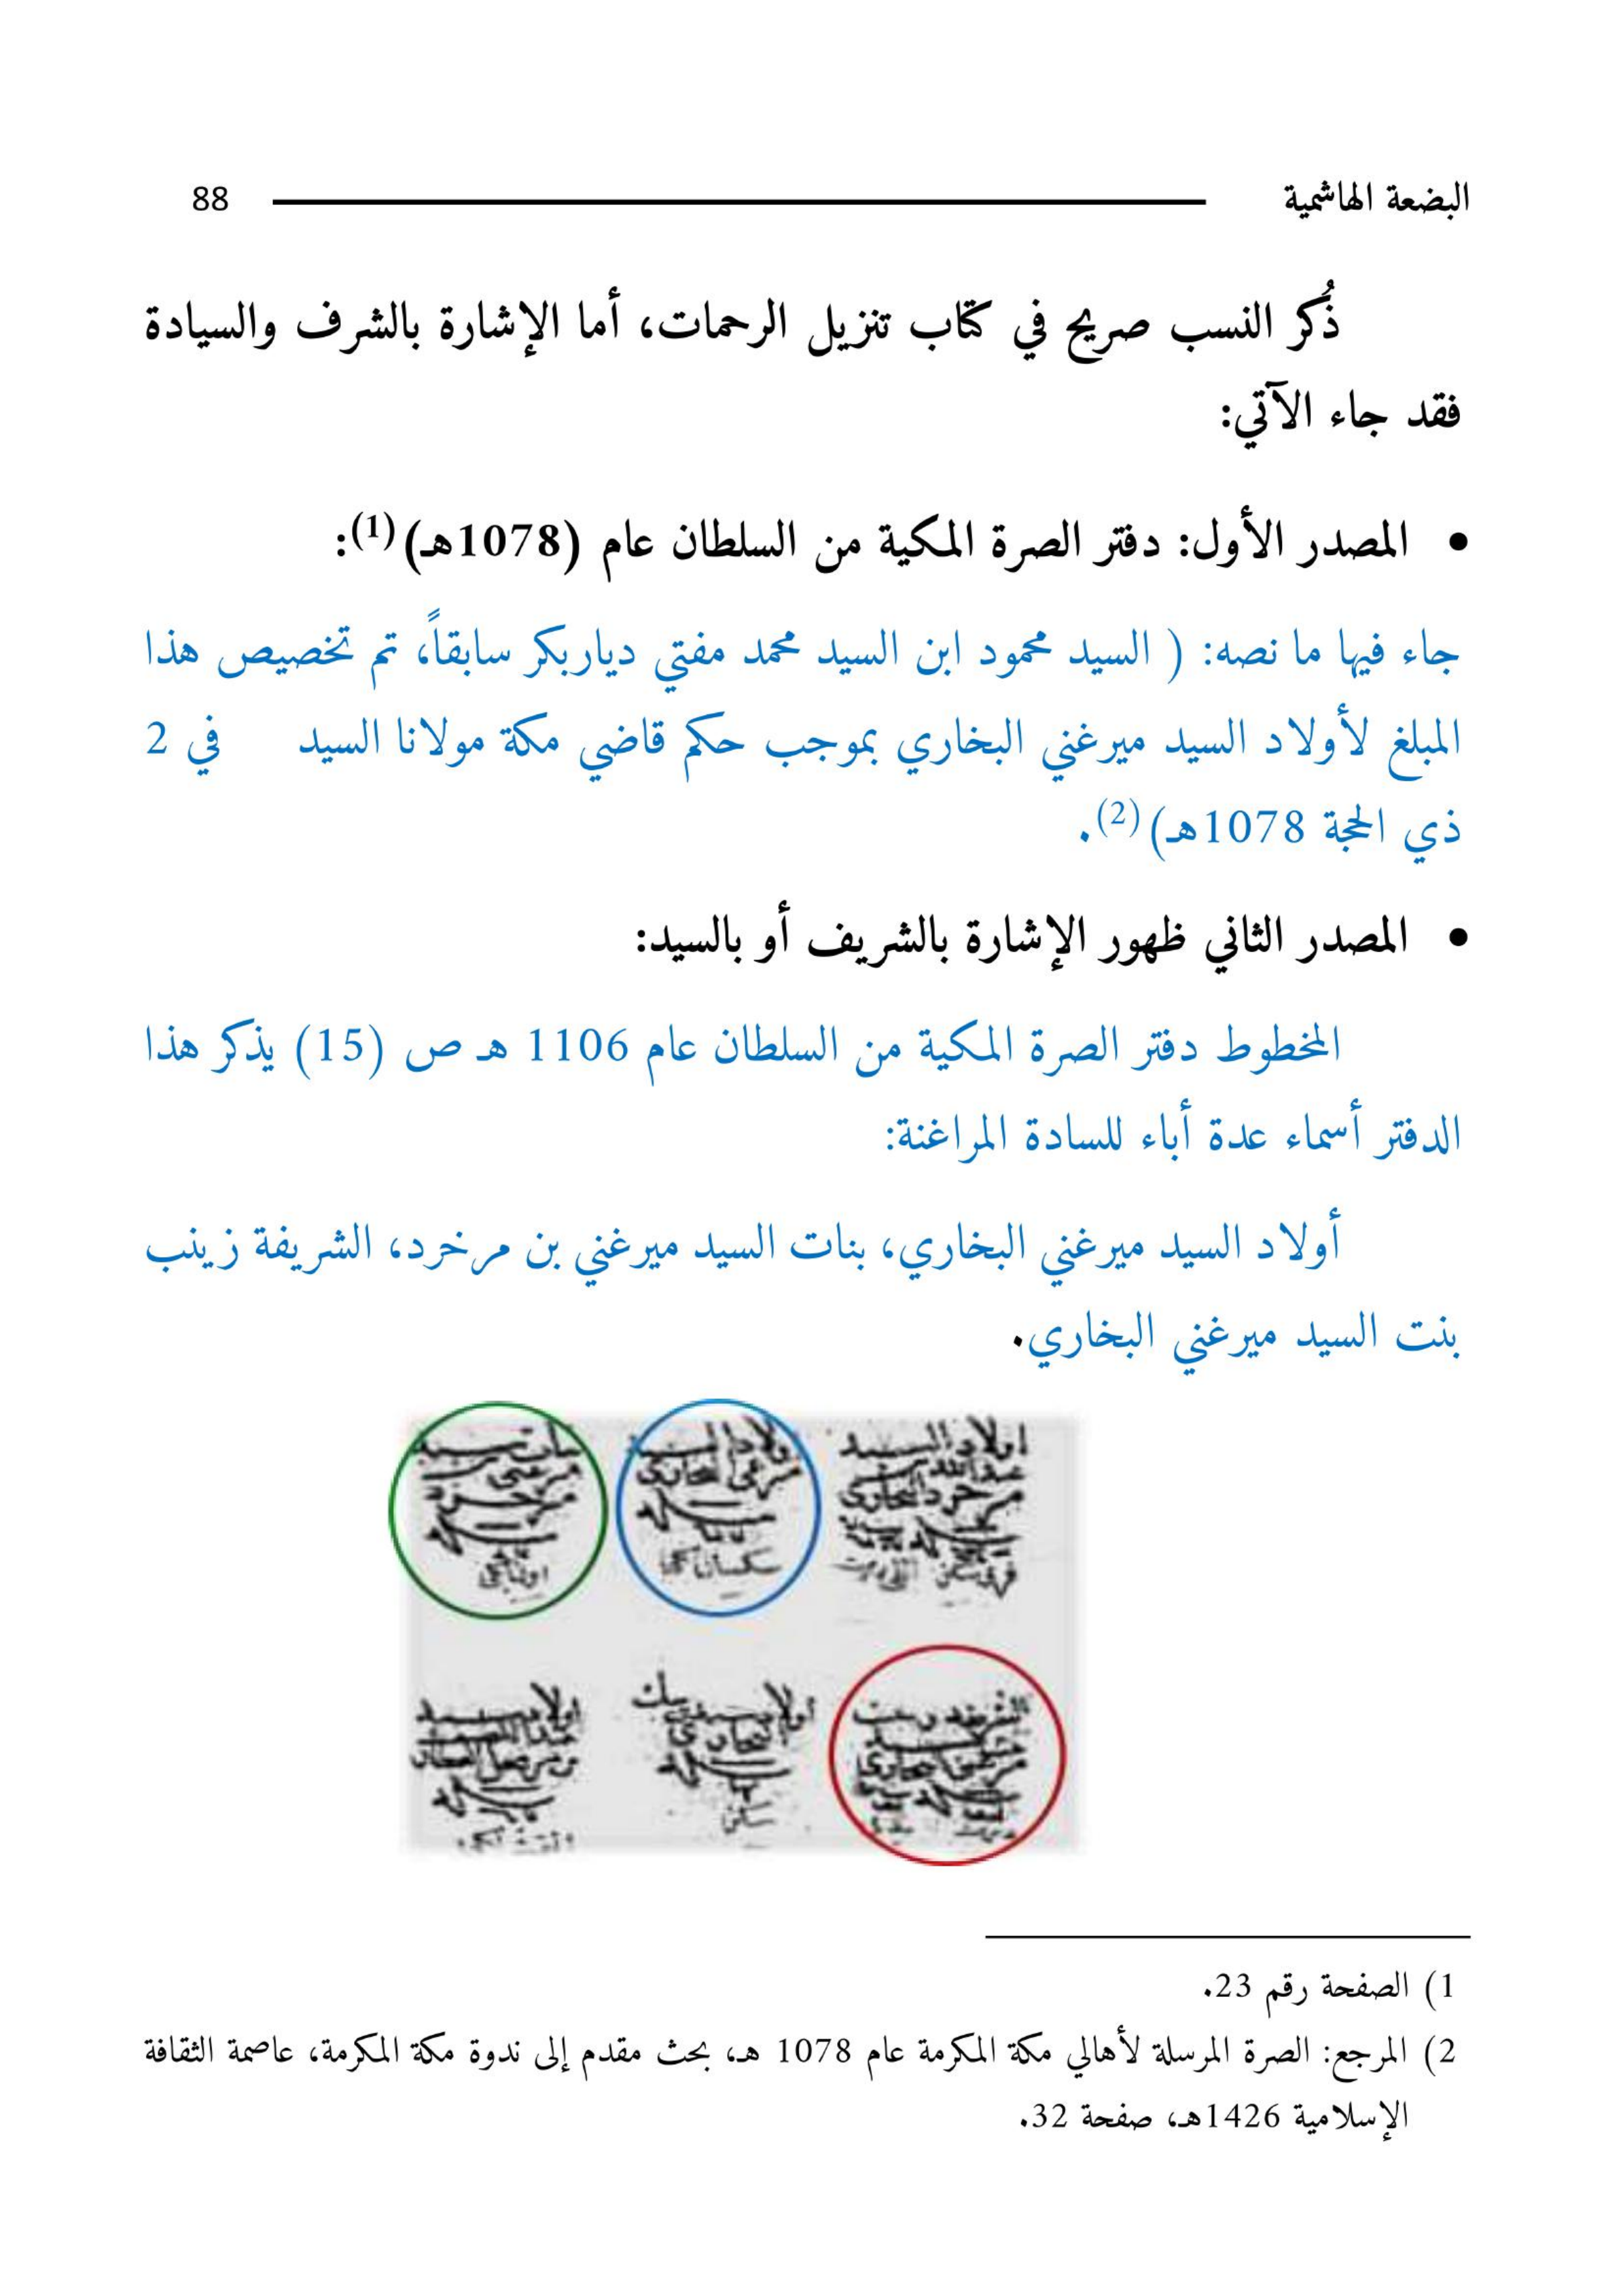 البضعة الهاشمية
88
ذُكر النسب صريح في كتاب تنزيل الرحمات، أما الإشارة بالشرف والسيادة
فقد جاء الآتي:
• المصدر الأول: دفتر الصرة المكية من السلطان عام (1078هـ)(1):
جاء فيها ما نصه: ( السيد محمود ابن السيد محمد مفتي دياربكر سابقاً، تم تخصيص هذا
المبلغ لأولاد السيد ميرغني البخاري بموجب حكم قاضي مكة مولانا السيد في 2
ذي الحجة 1078هـ)(2).
• المصدر الثاني ظهور الإشارة بالشريف أو بالسيد:
المخطوط دفتر الصرة المكية من السلطان عام 1106 هـ ص (15) يذكر هذا
الدفتر أسماء عدة أباء للسادة المراغنة:
أولاد السيد ميرغني البخاري، بنات السيد ميرغني بن مرخرد، الشريفة زينب
بنت السيد ميرغني البخاري.
اولاد السيد
1) الصفحة رقم 23.
2) المرجع: الصرة المرسلة لأهالي مكة المكرمة عام 1078 هـ، بحث مقدم إلى ندوة مكة المكرمة، عاصمة الثقافة
الإسلامية 1426هـ، صفحة 32.